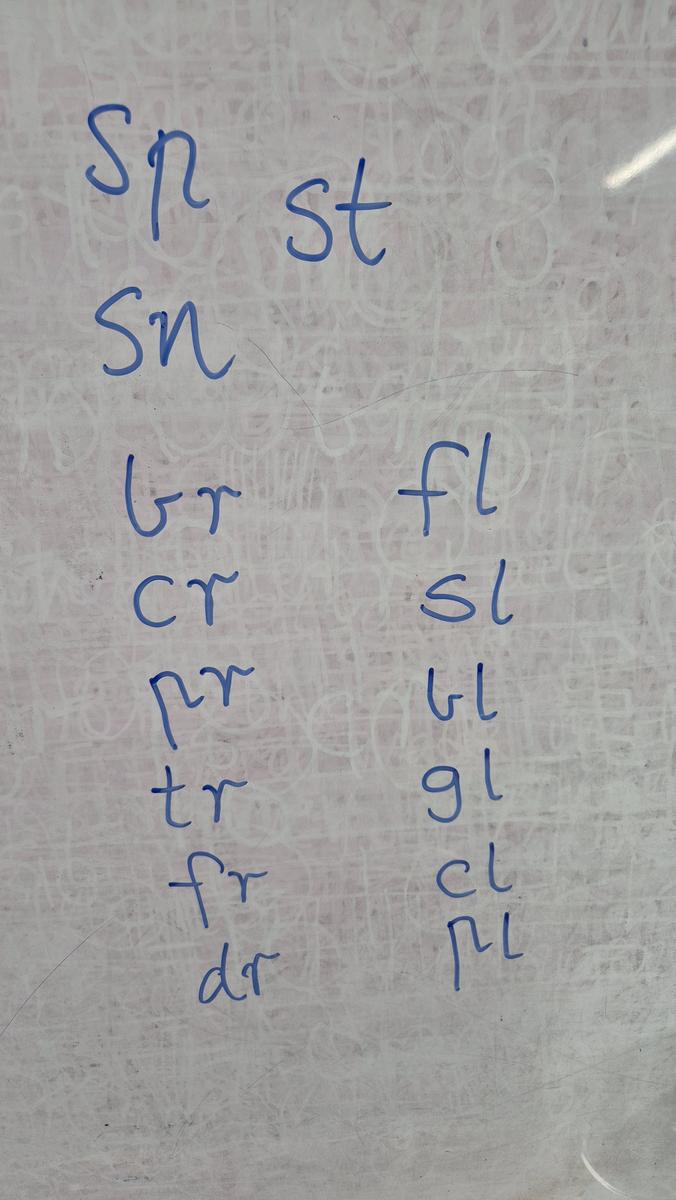 sp st
sn
br fl
cr sl
pr bl
tr gl
fr cl
dr pl